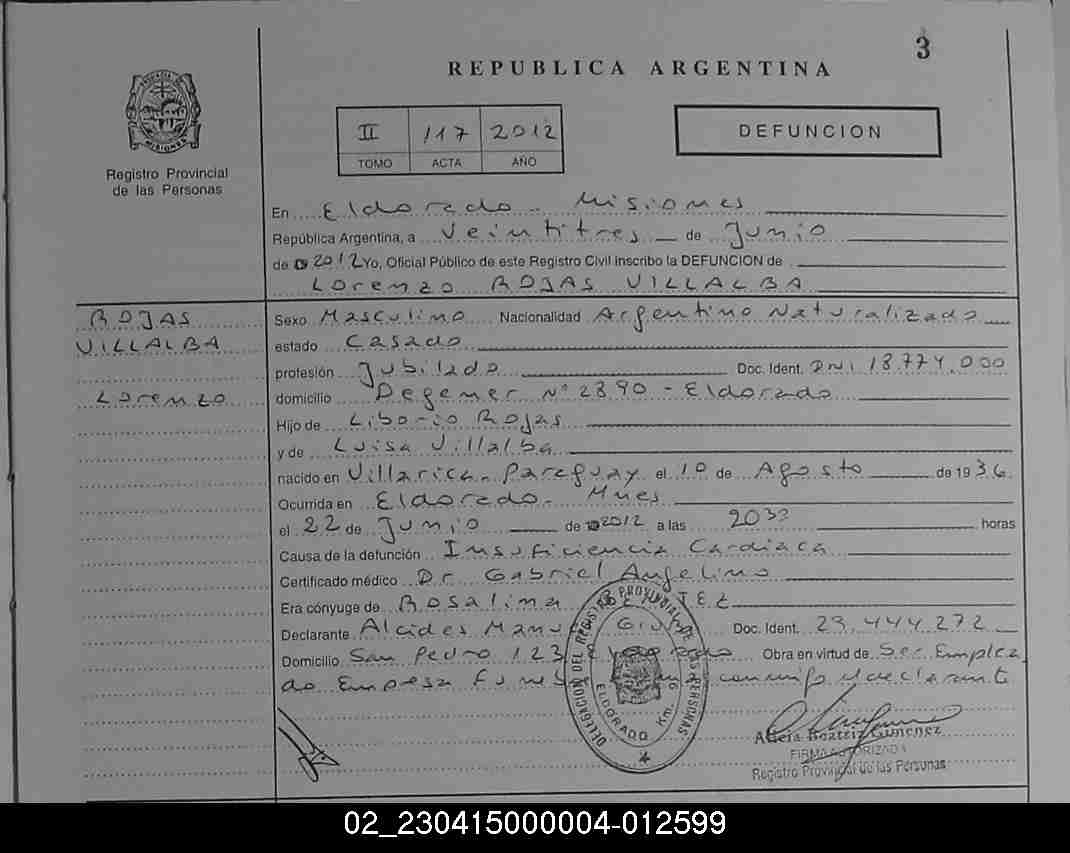 3
REPUBLICA ARGENTINA
PROVINCIA DE
MISIONES
Registro Provincial
de las Personas
II 117 2012
TOMO ACTA AÑO
DEFUNCION
En Eldorado - Misiones
República Argentina, a Veintitres de Junio
de 2012 Yo, Oficial Público de este Registro Civil inscribo la DEFUNCION de
Lorenzo ROJAS VILLALBA
ROJAS
VILLALBA
Lorenzo
Sexo Masculino Nacionalidad Argentino Naturalizado
estado Casado
profesión Jubilado Doc. Ident. DNI 18.774.000
domicilio Degener Nº 2890 - Eldorado
Hijo de Liborio Rojas
y de Luisa Villalba
nacido en Villarica - Paraguay el 10 de Agosto de 1936
Ocurrida en Eldorado - Mnes
el 22 de Junio de 2012 a las 2030 horas
Causa de la defunción Insuficiencia Cardiaca
Certificado médico Dr Gabriel Angelino
Era cónyuge de Rosalina
Declarante Alcides Doc. Ident. 23.444.272
Domicilio San Pedro 123 Eldorado Obra en virtud de Ser Emplea
do Empresa
DELEGACION DEL REGISTRO PROVINCIAL DE LAS PERSONAS
ELDORADO Km. 9
Alicia Beatriz Gimenez
FIRMA AUTORIZADA
Registro Provincial de las Personas
02_230415000004-012599